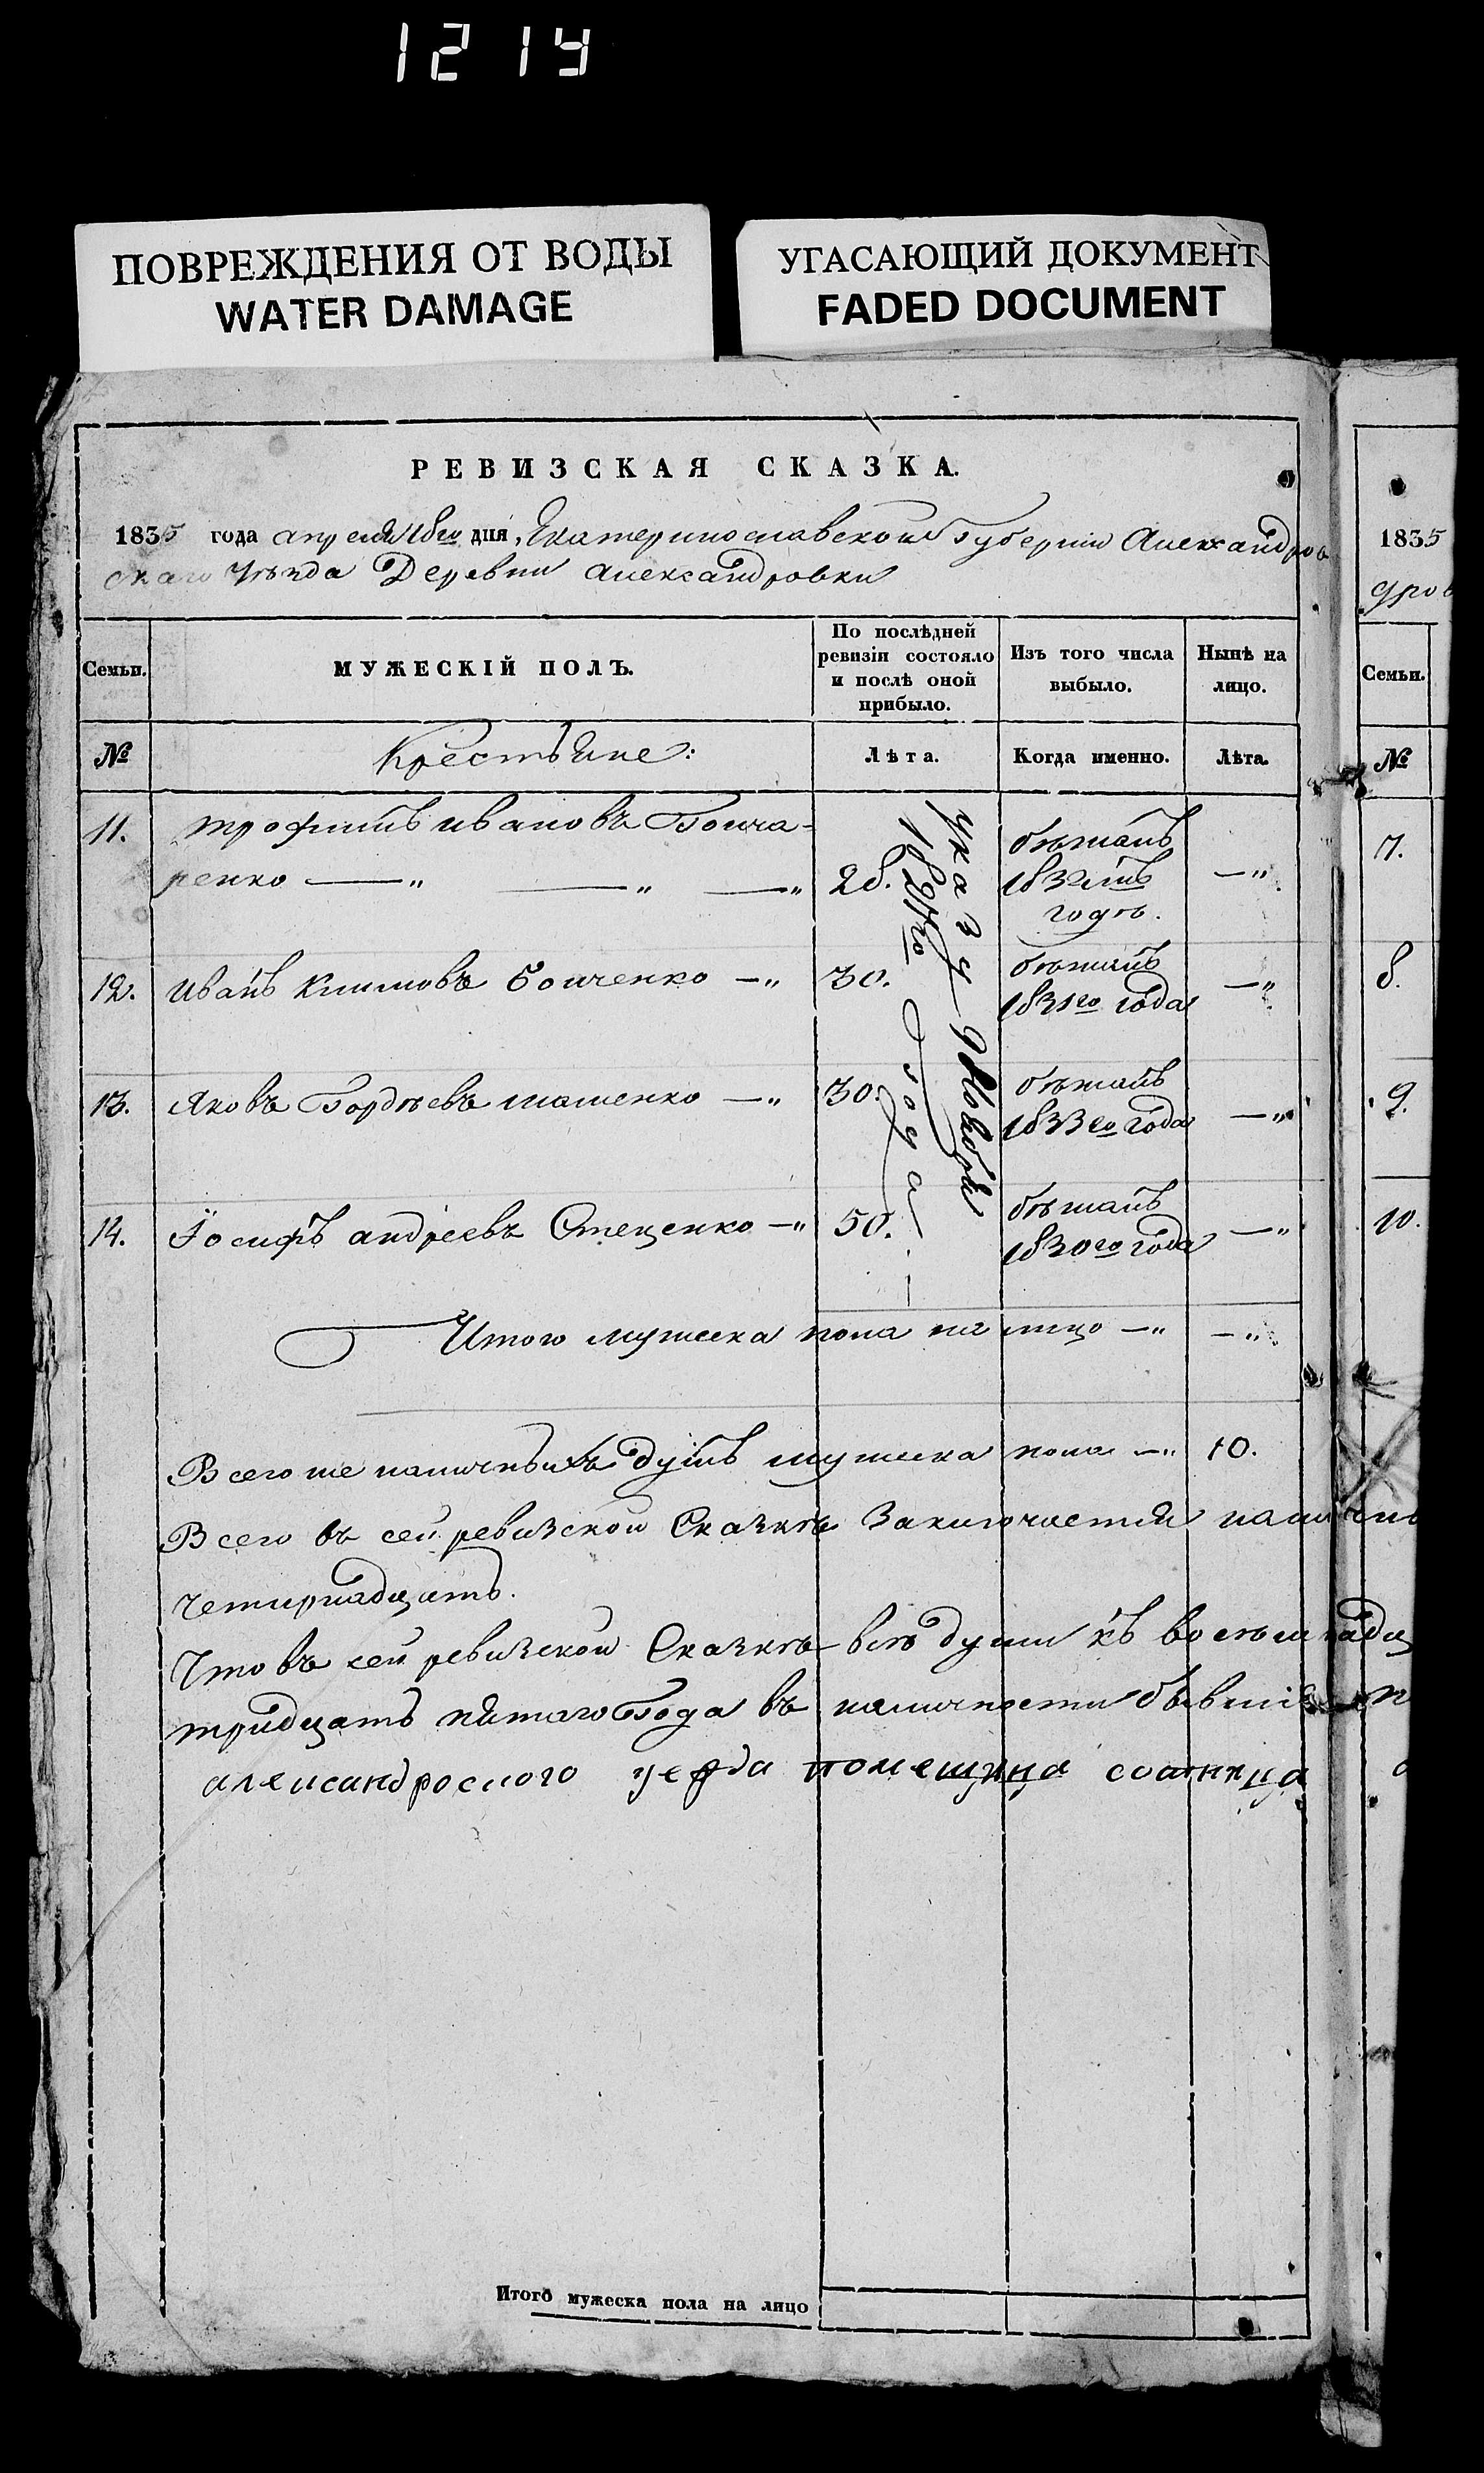 1214
ПОВРЕЖДЕНИЯ ОТ ВОДЫ
WATER DAMAGE
УГАСАЮЩИЙ ДОКУМЕНТ
FADED DOCUMENT
РЕВИЗСКАЯ СКАЗКА.
1835 года апреля 18го дня, Екатеринославской Губернии Александров
скаго Уѣзда Деревни александровки
Семьи.
МУЖЕСКІЙ ПОЛЪ.
По послѣдней
ревизіи состояло
и послѣ оной
прибыло.
Изъ того числа
выбыло.
Нынѣ на
лицо.
№
Крестьяне:
Лѣта.
Когда именно.
Лѣта.
11. трофимъ ивановъ Гонча-
ренко —„ —„ —„ 28.
бѣжалъ
1832мъ
годѣ. —„
12. иванъ климовъ —„ 30.
бѣжалъ
1831го года —„
13. Яковъ Гордѣевъ —„ 30.
бѣжалъ
1833го года —„
14. Іосифъ андреевъ Стеценко —„ 50.
бѣжалъ
1830го года —„
указу
года
Итого мужеска пола на лицо —„ —„
Всего же наличныхъ душъ мужеска пола —„ 10.
Всего въ сей ревизской Сказкѣ Заключается налично
четирнадцать.
Что въ сей ревизской Сказкѣ всѣ души къ восемнадц
тридцать пятаго Года въ наличности бывшіе
уезда
Итого мужеска пола на лицо
1835
дров
Семьи.
№
7.
8.
9.
10.